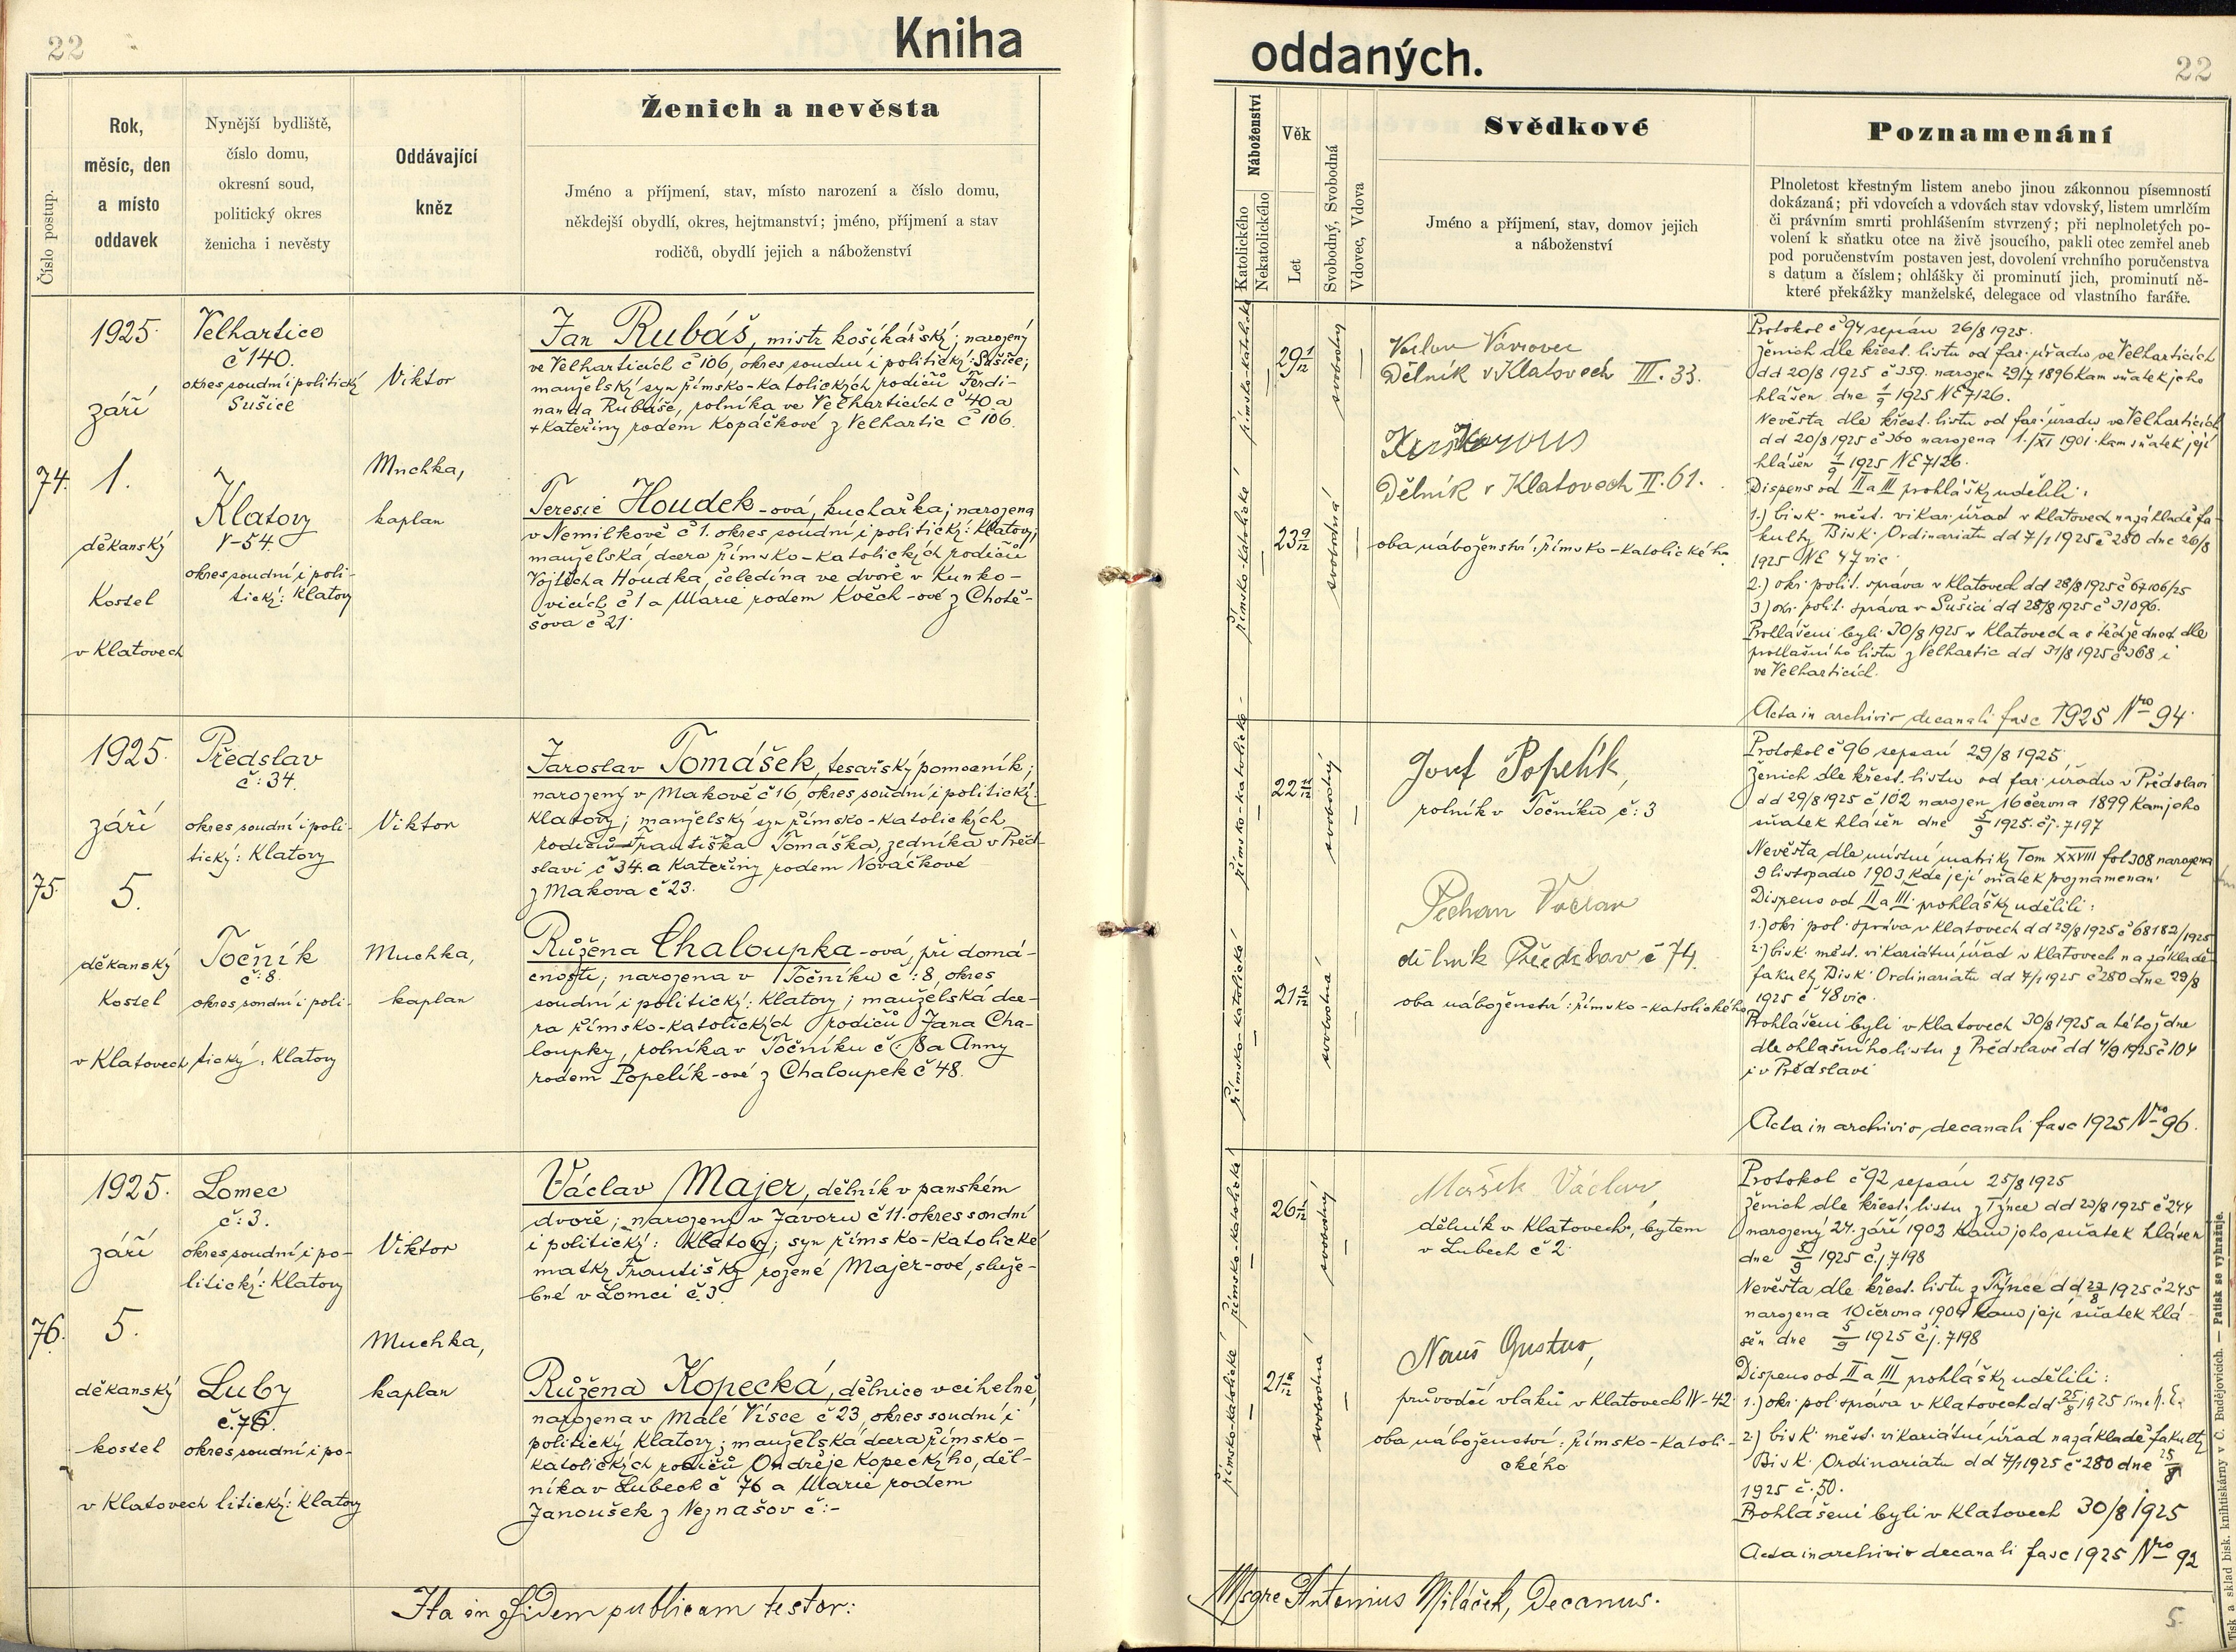 22
Kniha
oddaných.
22
Číslo postup.
Rok,
měsíc, den
a místo
oddavek
Nynější bydliště,
číslo domu,
okresní soud,
politický okres
ženicha i nevěsty
Oddávající
kněz
Ženich a nevěsta
Jméno a příjmení, stav, místo narození a číslo domu,
někdejší obydlí, okres, hejtmanství; jméno, příjmení a stav
rodičů, obydlí jejich a náboženství
Náboženství
Katolického
Nekatolického
Věk
Let
Svobodný, Svobodná
Vdovec, Vdova
Svědkové
Jméno a příjmení, stav, domov jejich
a náboženství
Poznamenání
Plnoletost křestným listem anebo jinou zákonnou písemností
dokázaná; při vdovcích a vdovách stav vdovský, listem umrlčím
či právním smrti prohlášením stvrzený; při neplnoletých po-
volení k sňatku otce na živě jsoucího, pakli otec zemřel aneb
pod poručenstvím postaven jest, dovolení vrchního poručenstva
s datum a číslem; ohlášky či prominutí jich, prominutí ně-
které překážky manželské, delegace od vlastního faráře.
74.
1925.
září
1.
děkanský
Kostel
v Klatovech
Velhartice
č 140.
okres soudní i politický
Sušice
Klatovy
V-54.
okres soudní i poli-
tický: Klatovy
Viktor
Muchka,
kaplan
Jan Rubáš, mistr košíkářský; narozený
ve Velharticích č 106, okres soudní i politický: Sušice;
manželský syn římsko-katolických rodičů Ferdi-
nanda Rubáše, rolníka ve Velharticích č 40 a
+Kateřiny rodem Kopáčkové z Velhartic č 106.
Teresie Houdek-ová, kuchařka; narozena
v Nemilkově č 1. okres soudní i politický: Klatovy;
manželská dcera římsko-katolických rodičů
Vojtěcha Houdka, čeledína ve dvoře v Kunko-
vicích č 1 a Marie rodem Kvěch-ové z Chotě-
šova č 21.
římsko-katolické
29 1/12
svobodný
římsko-katolické
23 9/12
svobodná
Václav Vavrovec
Dělník v Klatovech III. 33.
Dělník v Klatovech II. 61.
oba náboženství: římsko-katolického.
Protokol č 94 sepsán 26/8 1925.
Ženich dle křest. listu od far. úřadu ve Velharticích
dd 20/8 1925 č 359. narozen 29/7 1896 Kam sňatek jeho
hlášen dne 1/9 1925 NE 7126.
Nevěsta dle křest. listu od far. úřadu ve Velharticích
dd 20/8 1925 č 360 narozena 1./XI 1901. Kam sňatek její
hlášen 1/9 1925 NE 7126.
Dispens od II a III prohlášky udělili:
1.) bisk. měst. vikar. úřad v Klatovech na základě fa-
kulty Bisk. Ordinariatu dd 7/1 1925 č 280 dne 26/8
1925 NE 47 vic
2.) okr. polit. správa v Klatovech dd 28/8 1925 č 67106/25
3) okr. polit. správa v Sušici dd 28/8 1925 č 31096.
Prohlášeni byli 30/8 1925 v Klatovech a dle
prohlašního listu z Velhartic dd 31/8 1925 č 368 i
ve Velharticích.
Acta in archivio decanali fasc 1925 Nro 94.
75.
1925.
září
5.
děkanský
Kostel
v Klatovech
Předslav
č: 34.
okres soudní i poli-
tický: Klatovy
Točník
č: 8.
okres soudní i poli-
tický: Klatovy
Viktor
Muchka,
kaplan
Jaroslav Tomášek, tesařský pomocník;
narozený v Makově č 16, okres soudní i politický:
Klatovy; manželský syn římsko-katolických
rodičů Františka Tomáška, zedníka v Před-
slavi č 34. a Kateřiny rodem Nováčkové
z Makova č 23.
Růžena Chaloupka-ová, při domá-
cnosti; narozena v Točníku č: 8, okres
soudní i politický: Klatovy; manželská dce-
ra římsko-katolických rodičů Jana Cha-
loupky, rolníka v Točníku č: 8 a Anny
rodem Popelík-ové z Chaloupek č 48.
římsko-katolické
22
svobodný
římsko-katolické
21
svobodná
Josef Popelík,
rolník v Točníku č: 3
Pechan Václav
dělník Předslav č 74.
oba náboženství: římsko-katolického
Protokol č 96 sepsaní 29/8 1925
Ženich dle křest. listu od far. úřadu v Předslavi
dd 29/8 1925 č 102 narozen 16 června 1899 Kam jeho
sňatek hlášen dne 5/9 1925. čj. 7197
Nevěsta dle místní matriky Tom XXVIII fol 308 narozena
9 listopadu 1903, kde její sňatek poznamenán
Dispens od II a III. prohlášky udělili:
1.) okr. pol. správa v Klatovech dd 29/8 1925 č 68182/1925
2.) bisk. měst. vikariátní úřad v Klatovech na základě
fakulty Bisk. Ordinariatu dd 7/1 1925 č 280 dne 29/8
1925 č 48 vic.
Prohlášeni byli v Klatovech 30/8 1925 a téhož dne
dle ohlašního listu z Předslavě dd 4/9 1925 č 104
i v Předslavi
Acta in archivio decanali fasc 1925 Nro 96.
76.
1925.
září
5.
děkanský
kostel
v Klatovech
Lomec
č: 3.
okres soudní i po-
litický: Klatovy
Luby
č. 76.
okres soudní i po-
litický: Klatovy
Viktor
Muchka,
kaplan
Václav Majer, dělník v panském
dvoře; narozený v Javoru č 11. okres soudní
i politický: Klatovy; syn římsko-katolické
matky Františky rozené Majer-ové, služe-
bné v Lomci č. 3
Růžena Kopecká, dělnice v cihelně,
narozena v Malé Vísce č 23, okres soudní i
politický Klatovy; manželská dcera římsko-
katolických rodičů Ondřeje Kopeckýho, děl-
níka v Lubech č 76 a Marie rodem
Janoušek z Nejnašov č:-
římsko-katolické
26
svobodný
římsko-katolické
21
svobodná
Mašek Václav,
dělník v Klatovech, bytem
v Lubech č 2.
Nauš Gustav,
průvodčí vlaků v Klatovech IV-42.
oba náboženství: římsko-katoli-
ckého
Protokol č 92 sepsán 25/8 1925
Ženich dle křest. listu z Týnce dd 23/8 1925 č 244
narozený 27. září 1903 Kam jeho sňatek hlášen
dne 5/9 1925 č.j. 7198
Nevěsta dle křest. listu z Týnce dd 23/8 1925 č 245
narozena 10 června 1904 kam její sňatek hlá-
šen dne 5/9 1925 č.j. 7198
Dispens od II a III prohlášky udělili:
1.) okr. pol. správa v Klatovech dd 25/8 1925
2.) bisk. měst. vikariátní úřad na základě fakulty
Bisk. Ordinariatu dd 7/1 1925 č 280 dne 25/8
1925 č. 50.
Prohlášeni byli v Klatovech 30/8 1925
Acta in archivio decanali fasc 1925 Nro 92
Ita in fidem publicam testor:
Msgre Antonius Miláček, Decanus.
5.
Tisk a sklad bisk. knihtiskárny v Č. Budějovicích. — Patisk se vyhražuje.